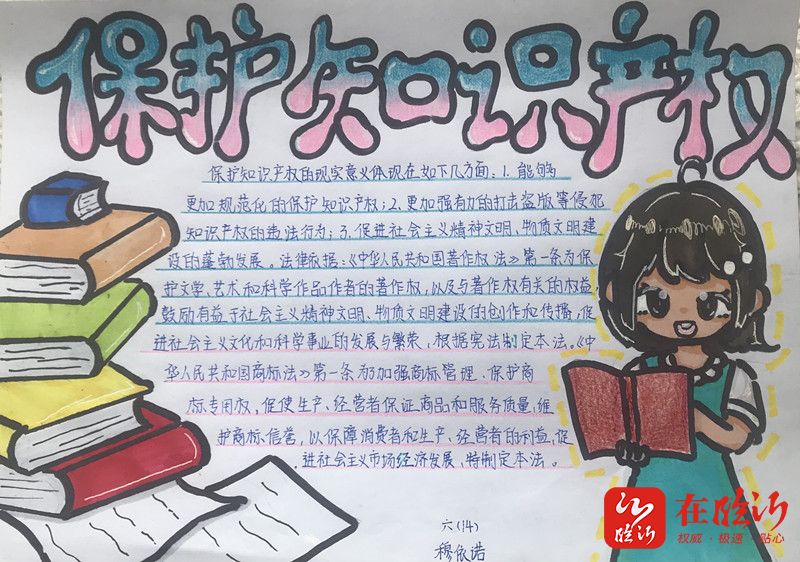 保护知识产权
保护知识产权的现实意义体现在如下几方面:1.能够
更加规范化的保护知识产权;2.更加强有力的打击盗版等侵犯
知识产权的违法行为;3.促进社会主义精神文明、物质文明建
设的蓬勃发展。法律依据:《中华人民共和国著作权法》第一条为保
护文学、艺术和科学作品作者的著作权,以及与著作权有关的权益,
鼓励有益于社会主义精神文明、物质文明建设的创作和传播,促
进社会主义文化和科学事业的发展与繁荣,根据宪法制定本法。《中
华人民共和国商标法》第一条为了加强商标管理、保护商
标专用权,促使生产、经营者保证商品和服务质量,维
护商标信誉,以保障消费者和生产、经营者的利益,促
进社会主义市场经济发展,特制定本法。
六(14)
穆依诺
在临沂
在临沂
权威·极速·贴心